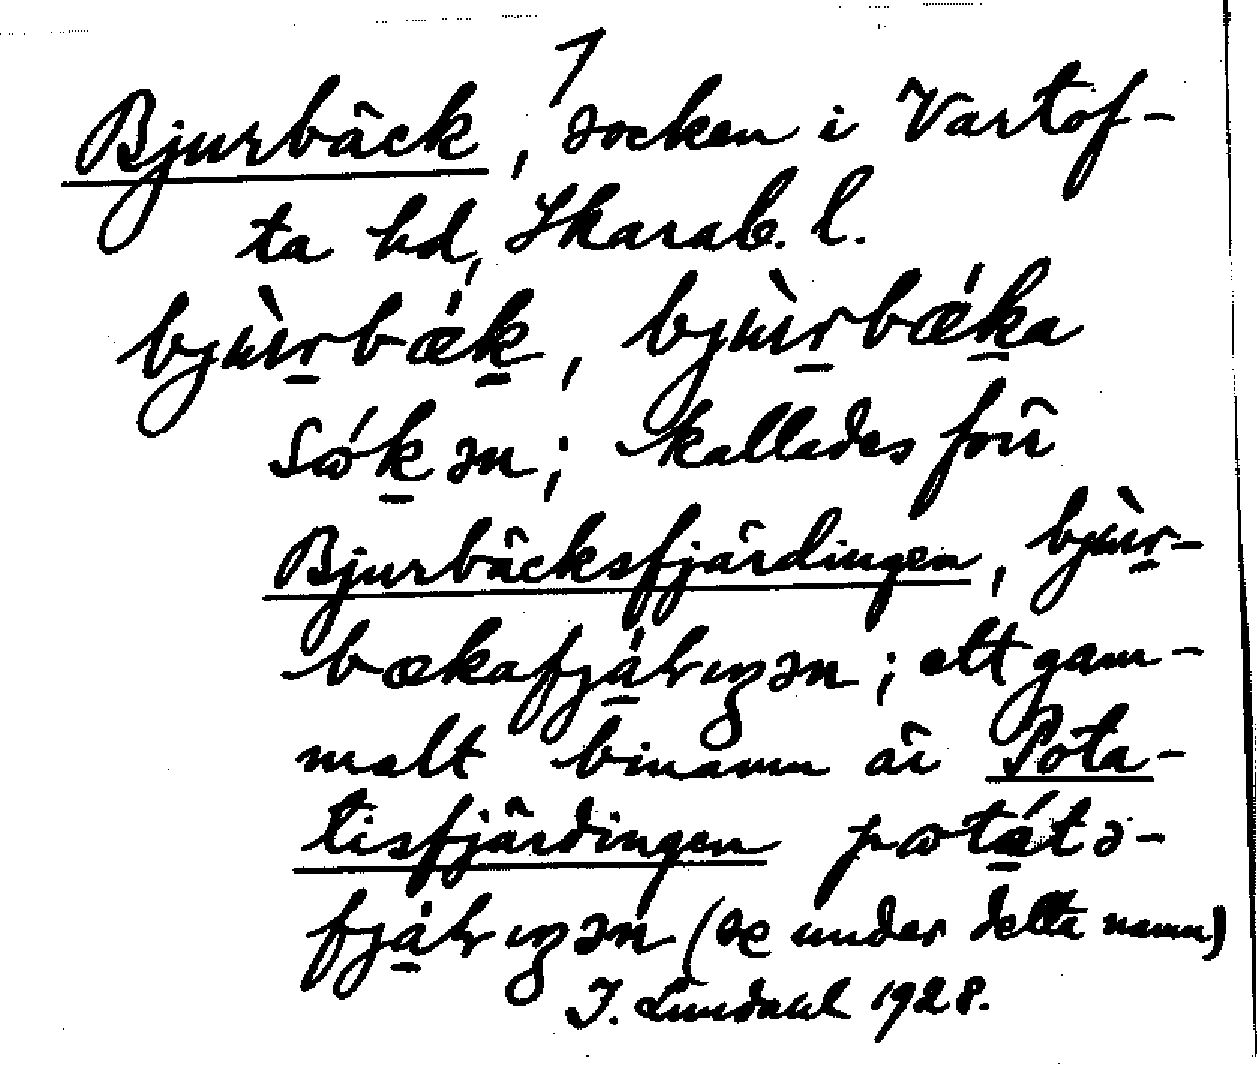 1
Bjurbäck, socken i Vartof-
ta hd, Skarab. l.
bjùr̲bǽk̲, bjùr̲bǽk̲a
sώk̲ən; kallades förr
Bjurbäcksfjärdingen, bjùr̲-
bækafjá̲rɩŋən; ett gam-
malt binamn är Pota-
tisfjärdingen pωtá̲tə-
fjá̲rɩŋən (se under detta namn)
I. Lundahl 1928.